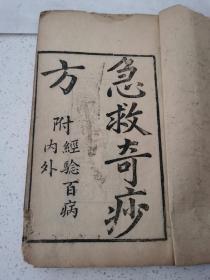 急救奇痧
方
附經驗百病
內外